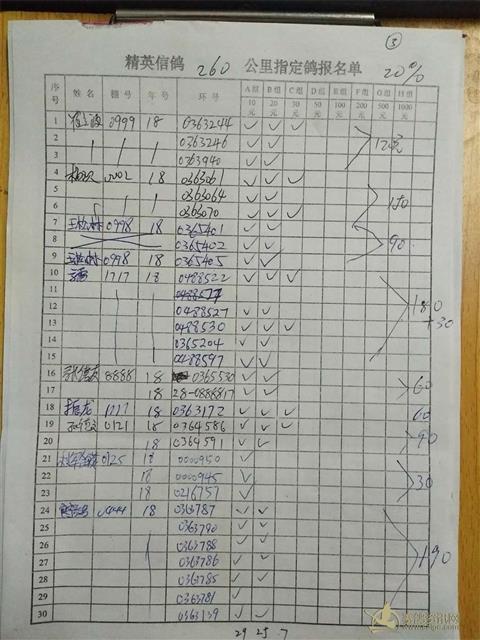 ③
精英信鸽 260 公里指定鸽报名单 20%
序号 姓名 棚号 年号 环号 A组10元 B组20元 C组30元 D组50元 E组100元 F组200元 G组500元 H组1000元
1 0999 18 0363244 ✓ ✓ ✓
2 0363246 ✓ ✓
3 0363940 ✓ ✓
120元
4 0002 18 0363061 ✓ ✓ ✓
5 0363064 ✓ ✓ ✓
6 0363070 ✓ ✓ ✓
180
7 0998 18 0365401 ✓ ✓
8 0365402 ✓ ✓
9 0998 18 0365405 ✓ ✓
90
10 1717 18 0488522 ✓ ✓ ✓
11
12 0488527 ✓ ✓
13 0488530 ✓ ✓ ✓
14 0365204 ✓ ✓
15 0488597 ✓ ✓
180
+30
16 8888 18 0365530 ✓ ✓
17 18 28-0888817 ✓ ✓
60
18 18 0363172 ✓ ✓ ✓
60
19 0121 18 0364586 ✓ ✓ ✓
20 18 0364591 ✓ ✓
90
21 0125 18 0000950 ✓
22 18 0000945 ✓
23 18 0216757 ✓
30
24 18 0363787 ✓ ✓
25 0363790 ✓ ✓
26 0363788 ✓ ✓
27 0363786 ✓ ✓
28 0363785 ✓ ✓
29 0363781 ✓ ✓
30 0363139 ✓ ✓
190
29 25 7